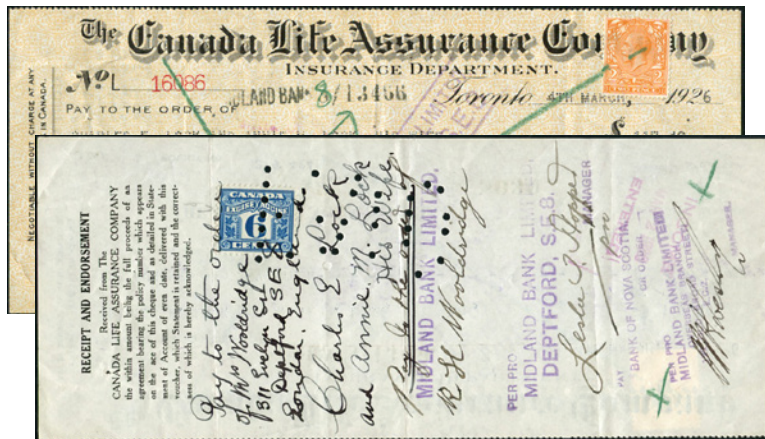 The Canada Life Assurance Company
INSURANCE DEPARTMENT.
No L 16086
MIDLAND BANK 8/13466
Toronto 4TH MARCH, 1926
PAY TO THE ORDER OF
LIMITED
S.E.
NEGOTIABLE WITHOUT CHARGE AT ANY
IN CANADA.
RECEIPT AND ENDORSEMENT
Received from The
CANADA LIFE ASSURANCE COMPANY
the within amount being the full proceeds of an
agreement bearing the policy number which appears
on the ace of this cheque and as detailed in State-
ment of Account of even date, delivered with this
voucher, which Statement is retained and the correct-
ness of which is hereby acknowledged.
CANADA
EXCISE
6
CENTS
Pay to the order
of Mrs Wooldridge
Evelyn
Deptford SE 8
London. England
Charles E Lock
and Annie. M. Lock
His Wife.
Pay to the order
MIDLAND BANK LIMITED.
R H Wooldridge
PER PRO
MIDLAND BANK LIMITED
DEPTFORD, S.E.8.
Leslie
MANAGER
PAY
BANK OF NOVA SCOTIA
OR ORDER
PER PRO
MIDLAND BANK LIMITED
MANAGER.